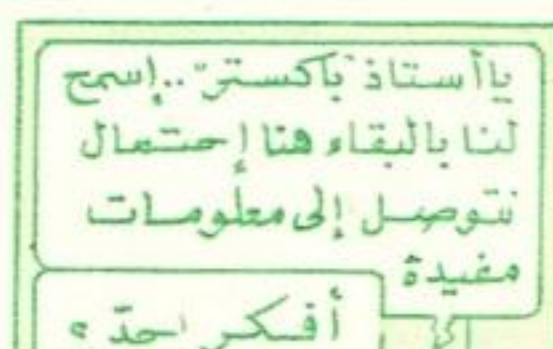 ياأستاذ "باكستر".. إسمح
لنا بالبقاء هنا إحتمال
نتوصل إلى معلومات
مفيدة
أفكر